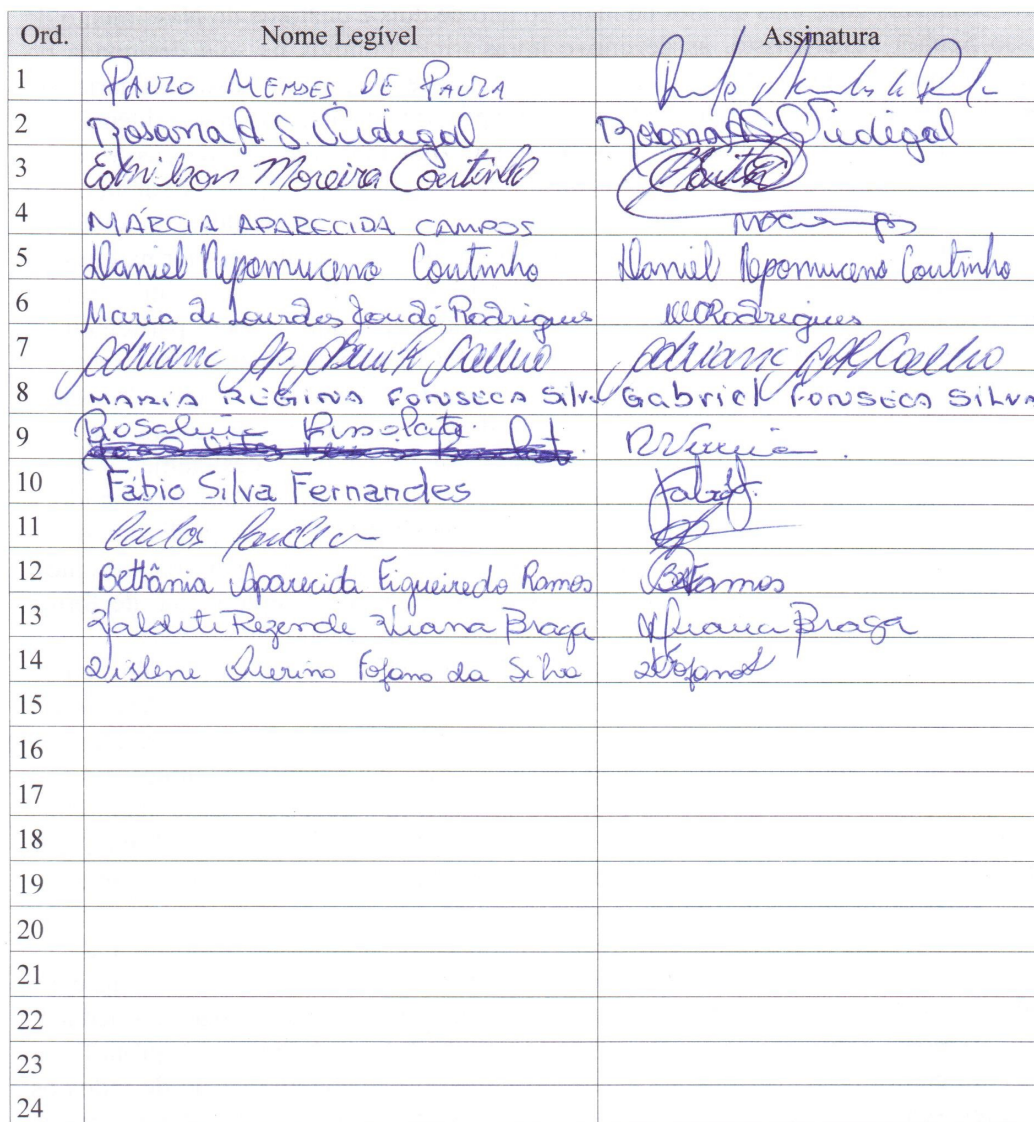 Ord. Nome Legível Assinatura
1 PAULO MENDES DE PAULA
2 Rosana A. S. Sudigal Rosana A S Sudigal
3 Ednilson Moreira Coutinho
4 MÁRCIA APARECIDA CAMPOS
5 Daniel Nepomuceno Coutinho Daniel Nepomuceno Coutinho
6 Maria de Lourdes Rodrigues MLRodrigues
7 Adriane Ap. Coelho Adriane Coelho
8 MARIA REGINA FONSECA Silva Gabriel FONSECA SILVA
9 Rosalina
10 Fábio Silva Fernandes
11 Carlos
12 Bethânia Aparecida Figueiredo Ramos BAFRamos
13 Valdete Rezende Viana Braga Viana Braga
14 Dislene Querino Fofano da Silva
15
16
17
18
19
20
21
22
23
24